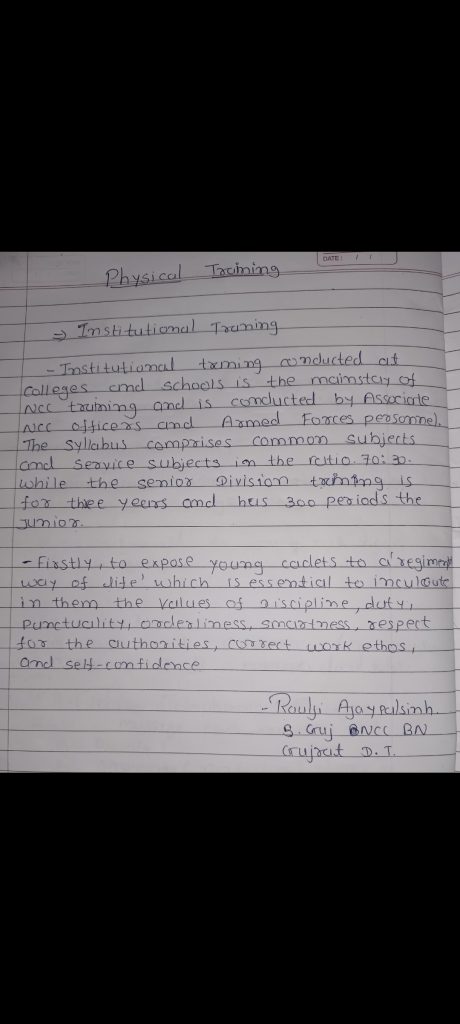 DATE: / /
Physical Training
⇒ Institutional Training
- Institutional training conducted at
Colleges and schools is the mainstay of
NCC training and is conducted by Associate
NCC officers and Armed Forces personnel.
The Syllabus comprises common subjects
and service subjects in the ratio. 70:30.
while the senior Division training is
for three years and has 300 periods the
junior.
- Firstly, to expose young cadets to a 'regiment
way of life' which is essential to inculcate
in them the values of discipline, duty,
punctuality, orderliness, smartness, respect
for the authorities, correct work ethos,
and self-confidence
- Raulji Ajaypalsinh.
Guj NCC BN
Gujrat D.T.